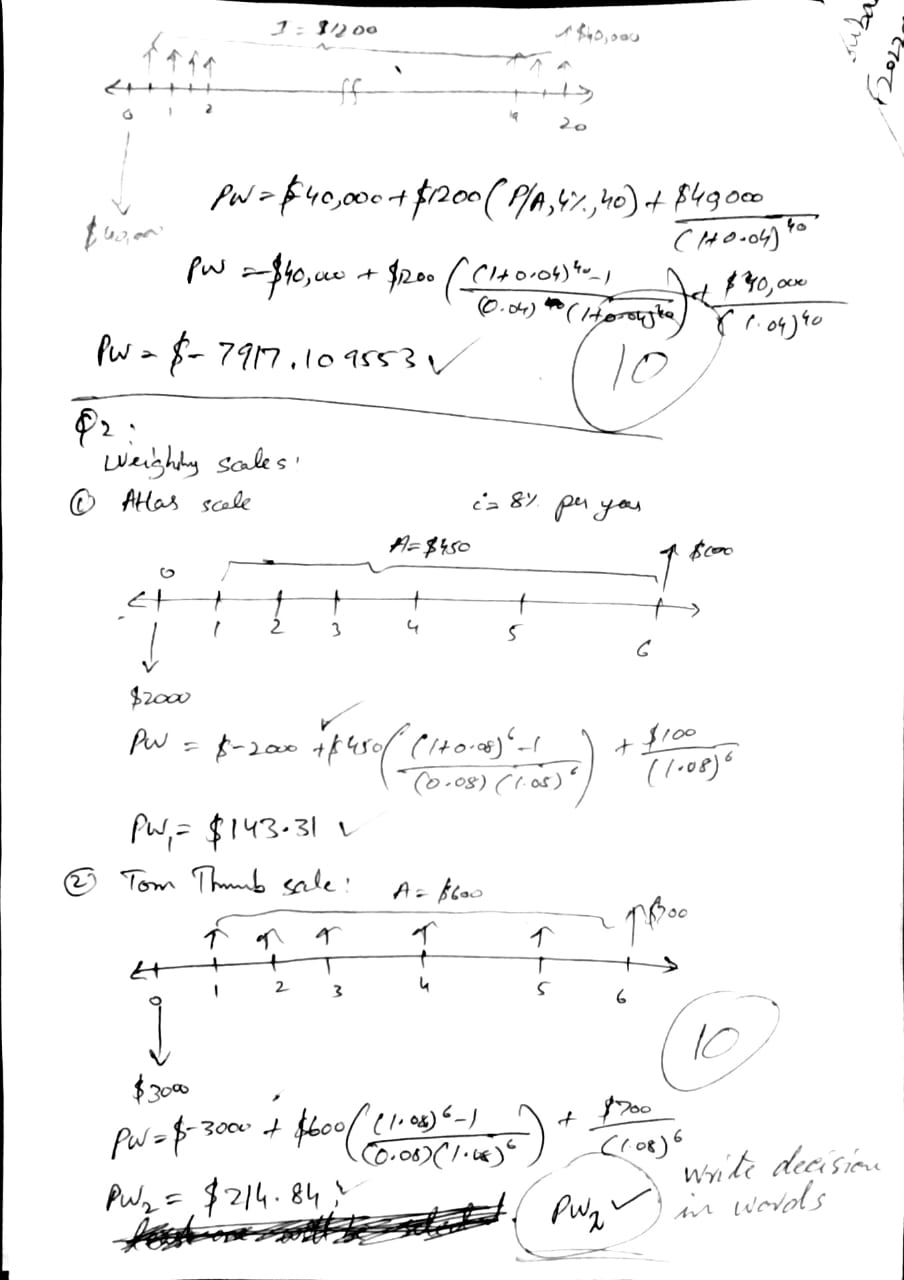 I = $1200
$40,000
0 1 2 19 20
PW = $40,000 + $1200 (P/A, 4%, 40) + $40000 / (1+0.04)^40
PW = -$40,000 + $1200 ( (1+0.04)^40 - 1 / (0.04) (1+0.04)^40 ) + $40,000 / (1.04)^40
PW = $- 7917.109553 ✓
10
Q2:
Weighing scales:
① Atlas scale i = 8% per year
A = $450
$100
0 1 2 3 4 5 6
$2000
PW = $-2000 + $450 ( (1+0.08)^6 - 1 / (0.08) (1.08)^6 ) + $100 / (1.08)^6
PW₁ = $143.31 ✓
② Tom Thumb sale:
A = $600
0 1 2 3 4 5 6
10
$3000
PW = $-3000 + $600 ( (1.08)^6 - 1 / (0.08) (1.08)^6 ) + $700 / (1.08)^6
PW₂ = $214.84 ✓
PW₂ ✓
Write decision
in words